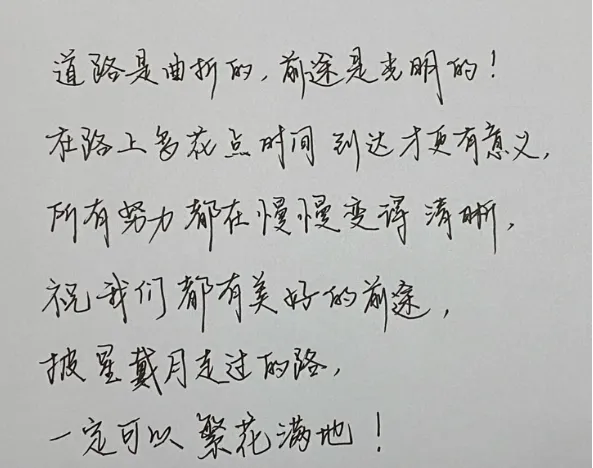 道路是曲折的，前途是光明的！
在路上多花点时间 到达才更有意义，
所有努力都在慢慢变得清晰，
祝我们都有美好的前途，
披星戴月走过的路，
一定可以繁花满地！